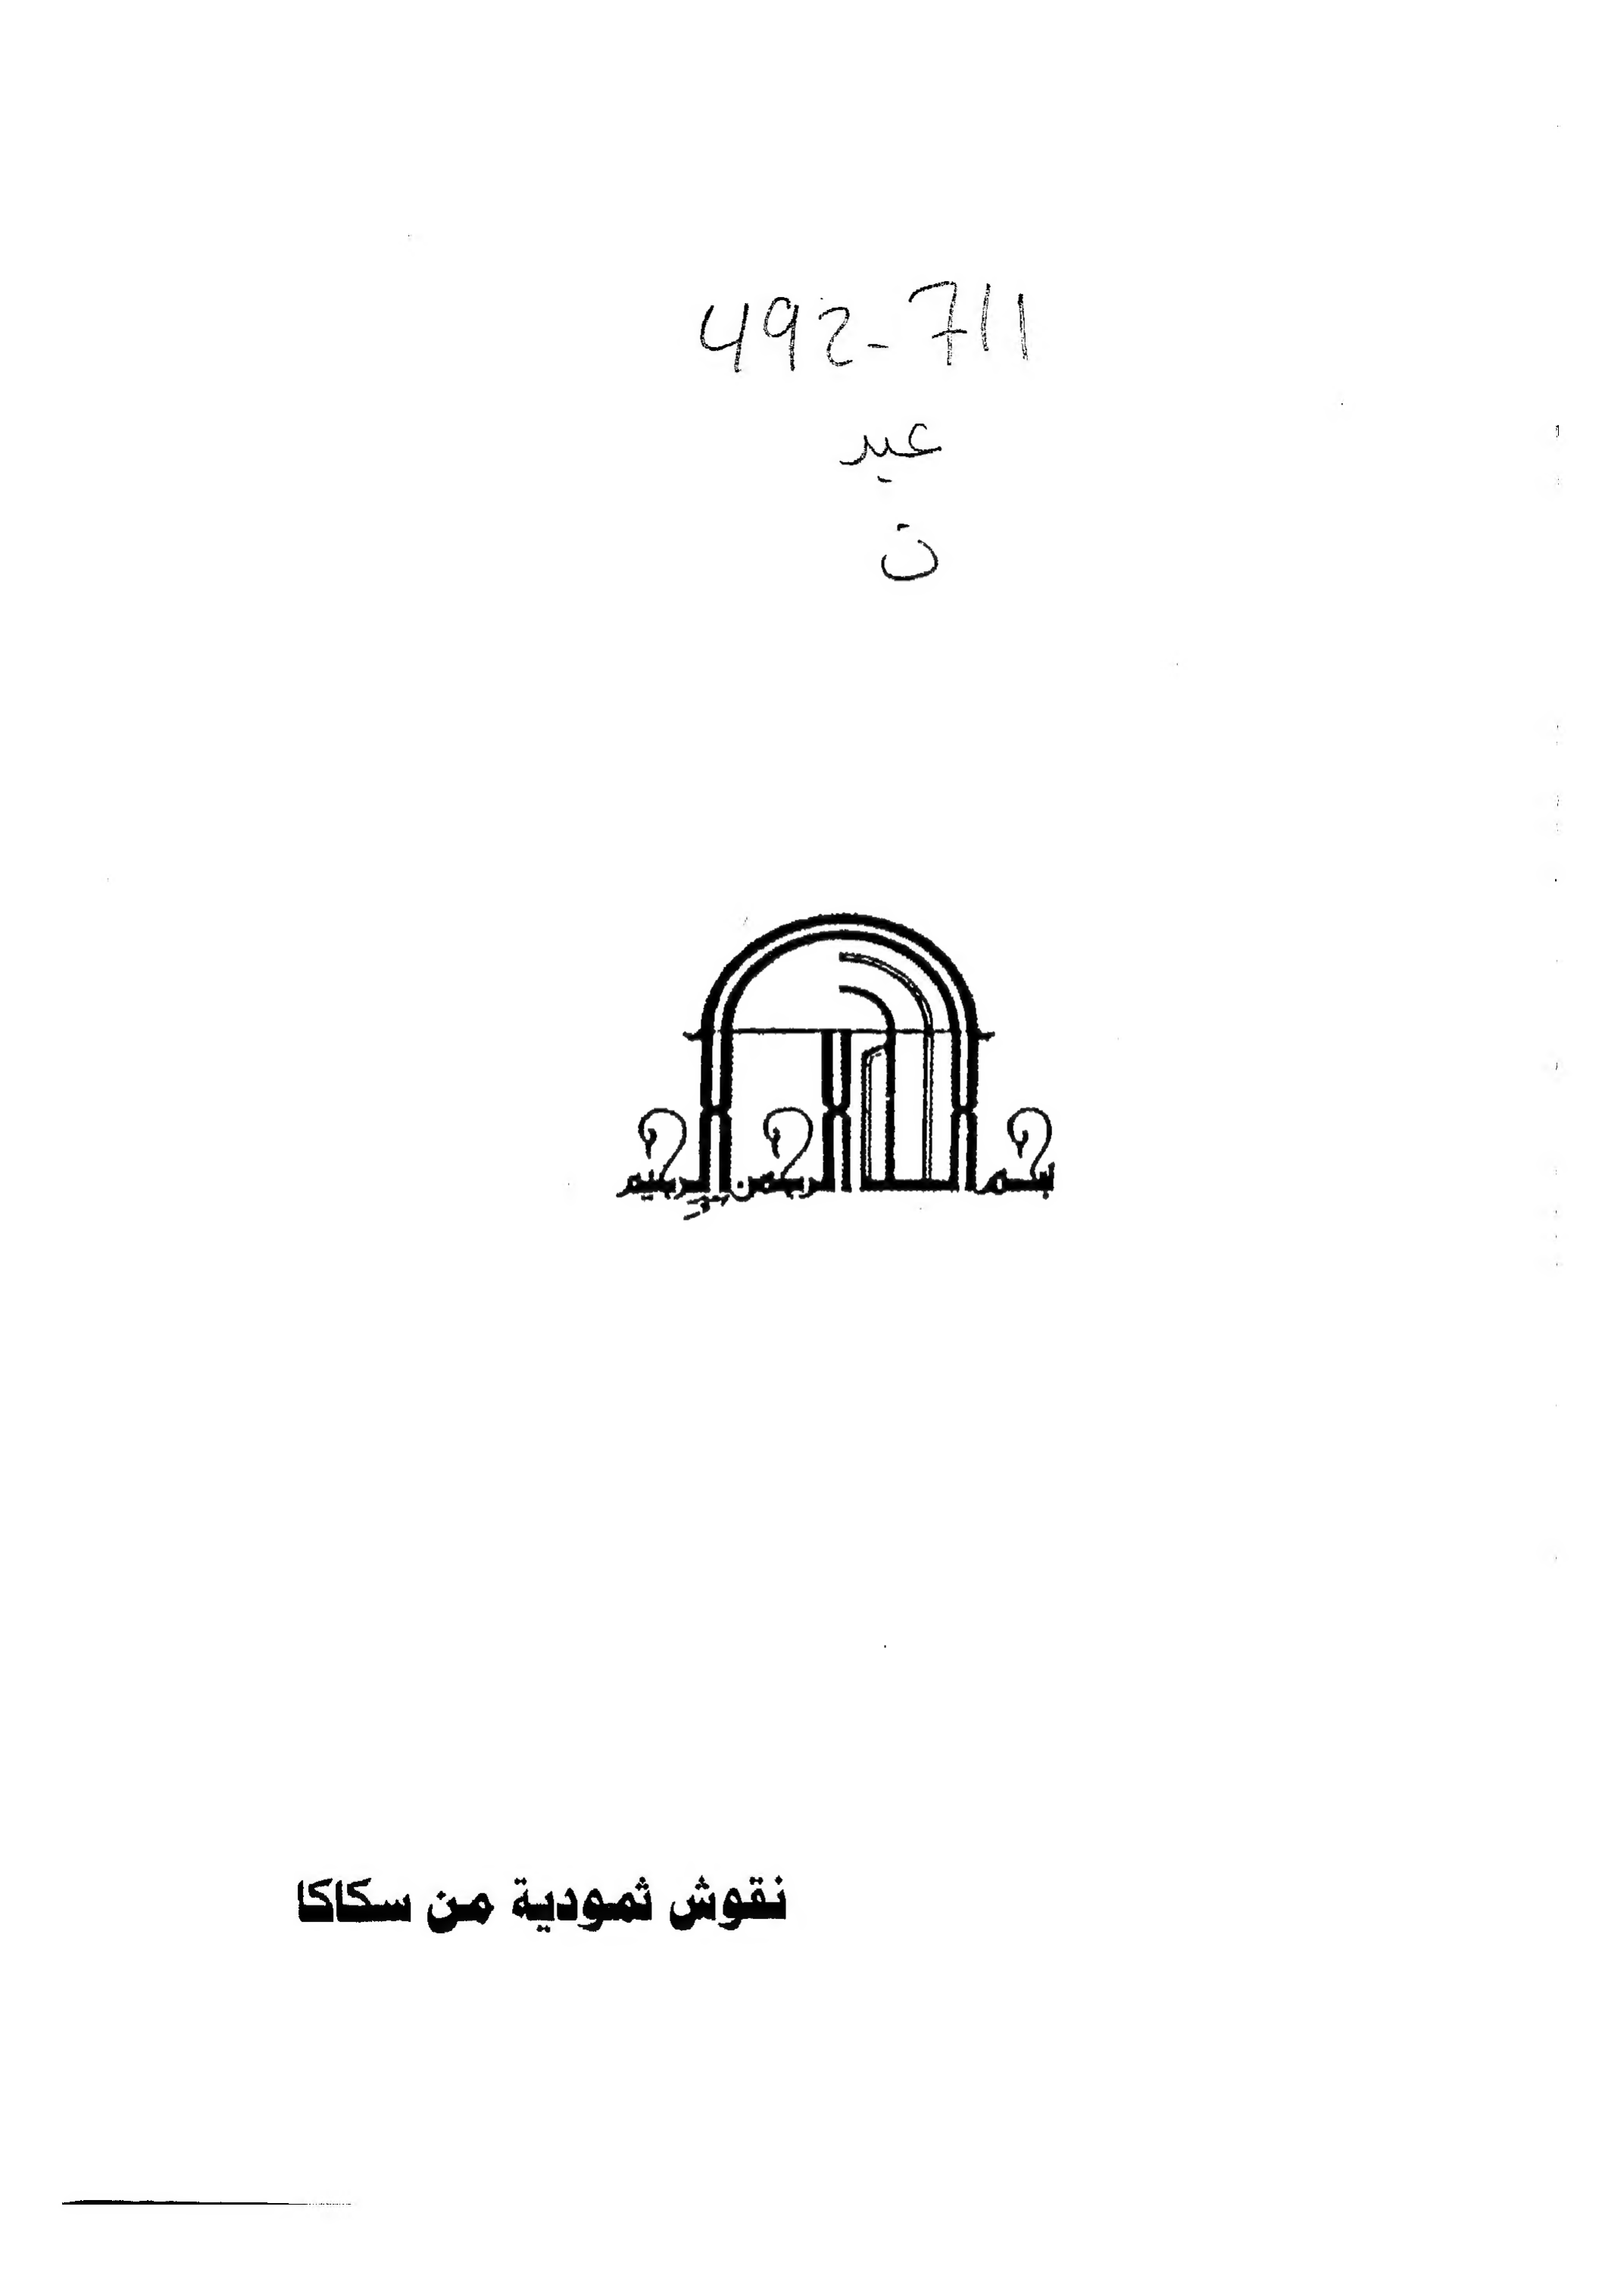 492-711
عبد
ن
بسم الله الرحمن الرحيم
نقوش ثمودية من سكاكا